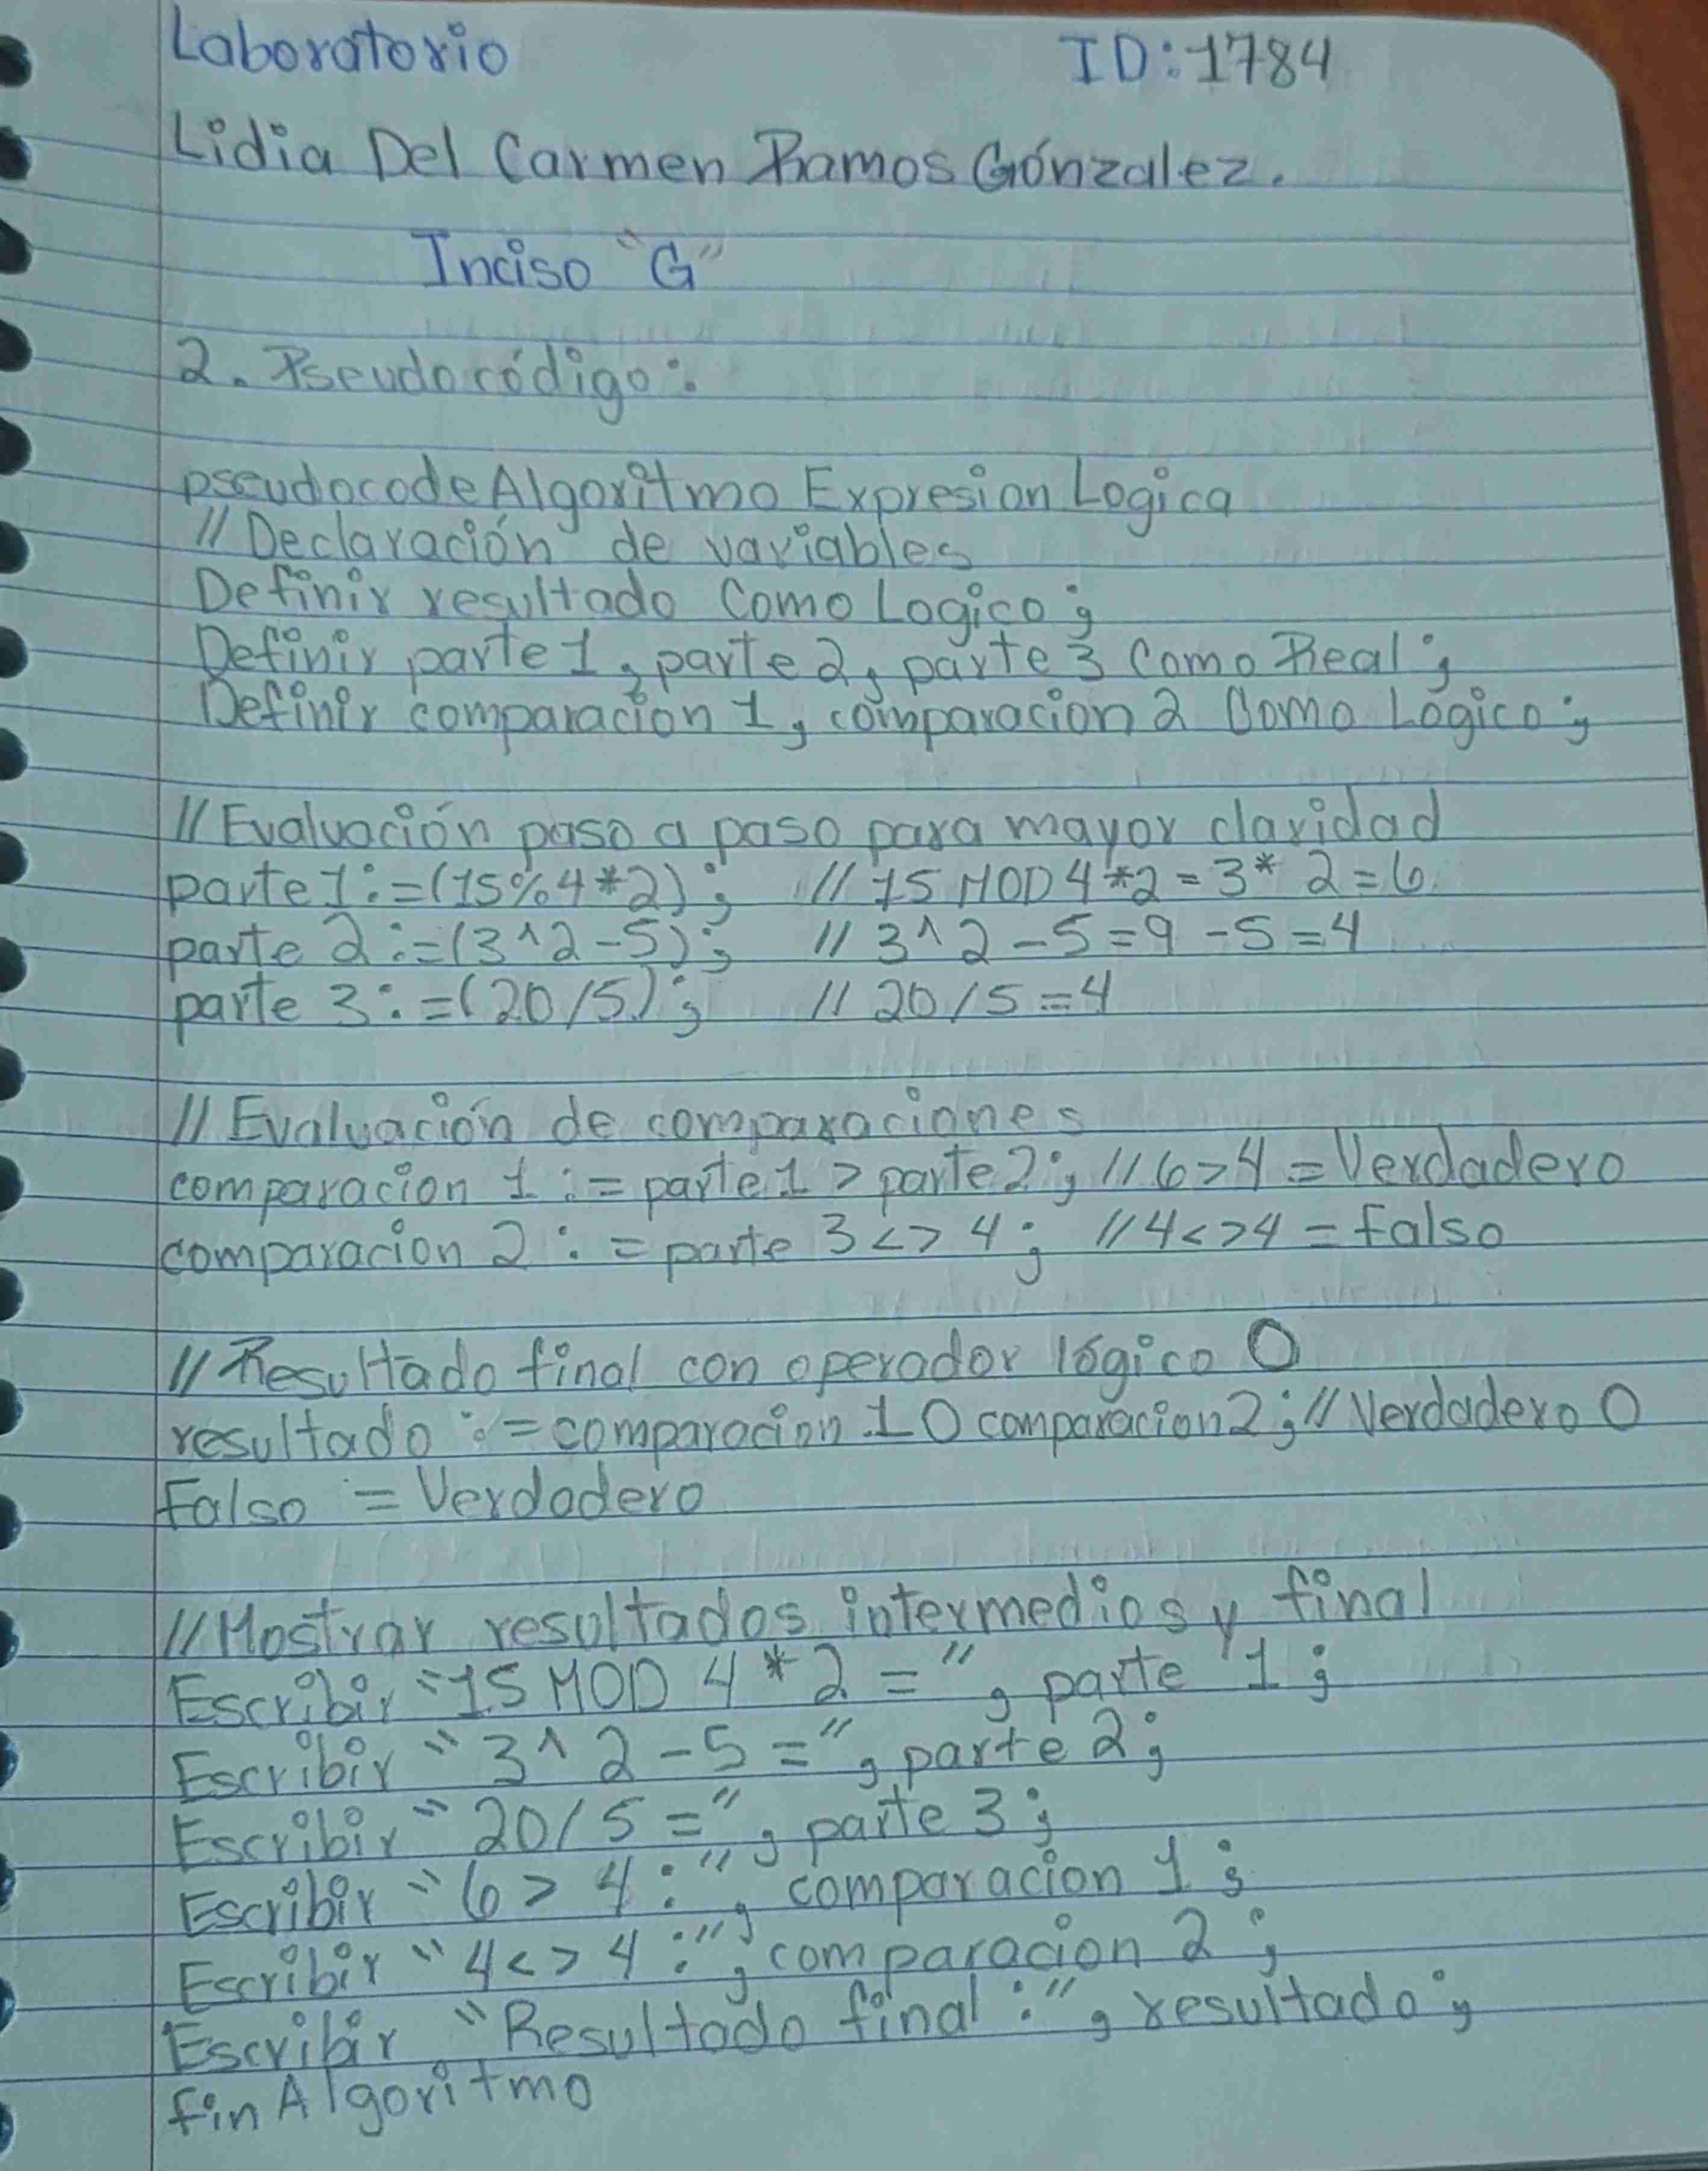 Laboratorio ID:1784
Lidia Del Carmen Ramos Gónzalez.
Inciso "G"
2. Pseudocódigo:
pseudocode Algoritmo Expresion Logica
// Declaración de variables
Definir resultado Como Logico;
Definir parte 1, parte 2, parte 3 Como Real;
Definir comparacion 1, comparacion 2 Como Logico;
// Evaluación paso a paso para mayor claridad
parte 1:=(15%4*2); // 15 MOD 4*2=3*2=6
parte 2:=(3^2-5); // 3^2-5=9-5=4
parte 3:=(20/5); // 20/5=4
// Evaluación de comparaciones
comparacion 1 := parte 1 > parte 2; // 6>4 = Verdadero
comparacion 2 := parte 3 <> 4; // 4<>4 = falso
// Resultado final con operador lógico O
resultado := comparacion 1 O comparacion 2; // Verdadero O
Falso = Verdadero
// Mostrar resultados intermedios y final
Escribir "15 MOD 4*2 =", parte 1;
Escribir "3^2-5=", parte 2;
Escribir "20/5=", parte 3;
Escribir "6>4:", comparacion 1;
Escribir "4<>4:", comparacion 2;
Escribir "Resultado final:", resultado;
fin Algoritmo